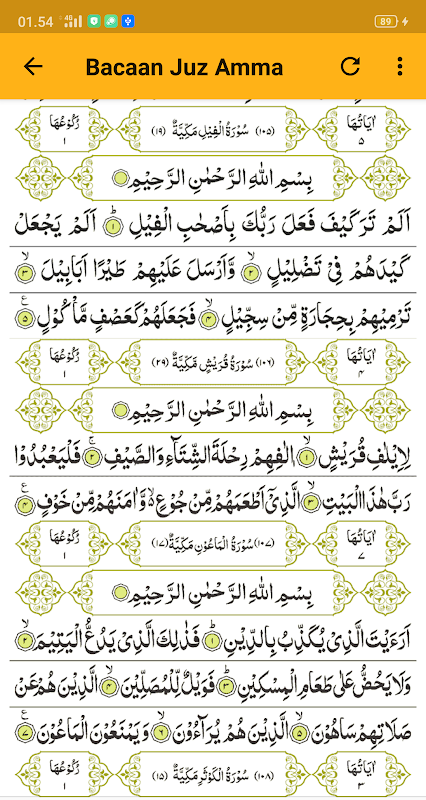 01.54 4G 89
Bacaan Juz Amma
اٰيَاتُهَا ٥ (١٠٥) سُوْرَةُ الْفِيْلِ مَكِّيَّةٌ (١٩) رُكُوْعُهَا ١
بِسْمِ اللّٰهِ الرَّحْمٰنِ الرَّحِيْمِ
اَلَمْ تَرَكَيْفَ فَعَلَ رَبُّكَ بِاَصْحٰبِ الْفِيْلِ ١ اَلَمْ يَجْعَلْ
كَيْدَهُمْ فِيْ تَضْلِيْلٍ ٢ وَّاَرْسَلَ عَلَيْهِمْ طَيْرًا اَبَابِيْلَ ٣
تَرْمِيْهِمْ بِحِجَارَةٍ مِّنْ سِجِّيْلٍ ٤ فَجَعَلَهُمْ كَعَصْفٍ مَّأْكُوْلٍ ٥
اٰيَاتُهَا ٤ (١٠٦) سُوْرَةُ قُرَيْشٍ مَكِّيَّةٌ (٢٩) رُكُوْعُهَا ١
بِسْمِ اللّٰهِ الرَّحْمٰنِ الرَّحِيْمِ
لِاِيْلٰفِ قُرَيْشٍ ١ اٖلٰفِهِمْ رِحْلَةَ الشِّتَآءِ وَالصَّيْفِ ٢ فَلْيَعْبُدُوْا
رَبَّ هٰذَا الْبَيْتِ ٣ الَّذِيْٓ اَطْعَمَهُمْ مِّنْ جُوْعٍ ەۙ وَّاٰمَنَهُمْ مِّنْ خَوْفٍ ٤
اٰيَاتُهَا ٧ (١٠٧) سُوْرَةُ الْمَاعُوْنَ مَكِّيَّةٌ (١٧) رُكُوْعُهَا ١
بِسْمِ اللّٰهِ الرَّحْمٰنِ الرَّحِيْمِ
اَرَءَيْتَ الَّذِيْ يُكَذِّبُ بِالدِّيْنِ ١ فَذٰلِكَ الَّذِيْ يَدُعُّ الْيَتِيْمَ ٢
وَلَا يَحُضُّ عَلٰى طَعَامِ الْمِسْكِيْنِ ٣ فَوَيْلٌ لِّلْمُصَلِّيْنَ ٤ الَّذِيْنَ هُمْ عَنْ
صَلَاتِهِمْ سَاهُوْنَ ٥ الَّذِيْنَ هُمْ يُرَآءُوْنَ ٦ وَيَمْنَعُوْنَ الْمَاعُوْنَ ٧
اٰيَاتُهَا ٣ (١٠٨) سُوْرَةُ الْكَوْثَرِ مَكِّيَّةٌ (١٥) رُكُوْعُهَا ١